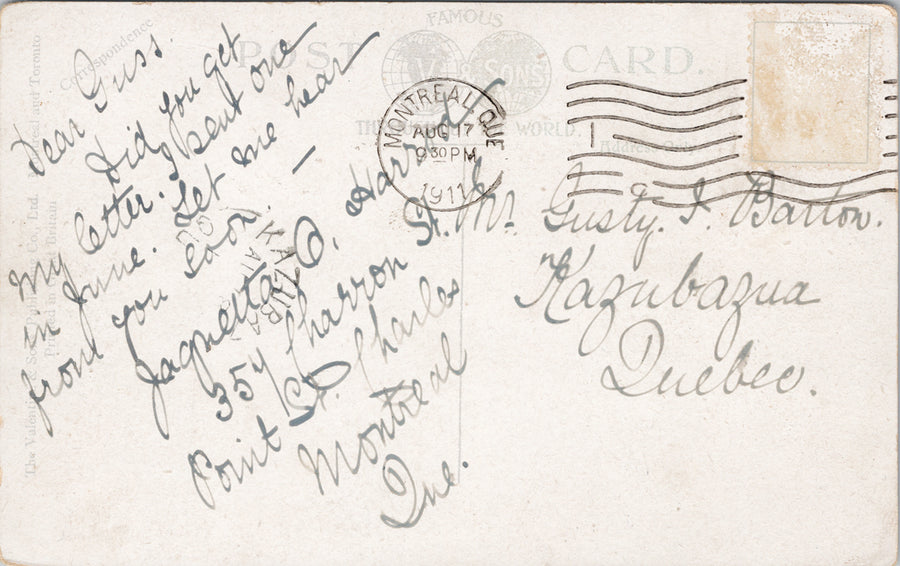 FAMOUS
POST CARD.
THE WORLD.
Correspondence
Address Only
Dear Guss.
Did you get
my letter. I sent one
in June. Let me hear
from you soon. —
Jaquetta O.
357 Charron St.
Point St. Charles
Montreal
Que.
MONTREAL QUE
AUG 17
9 30 PM
1911
Mr. Gusty. I. Barton.
Kazubazua
Quebec.
KAZUBA
The Valentine & Sons Publishing Co., Ltd.
and Toronto
Printed in Great Britain